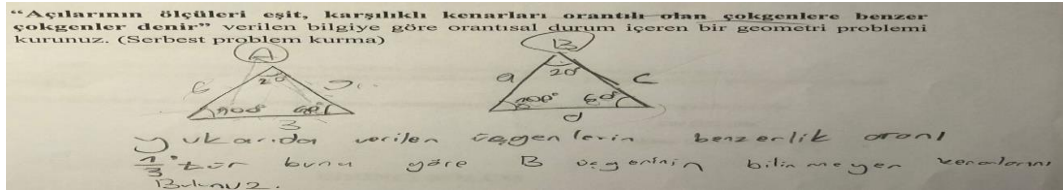 “Açılarının ölçüleri eşit, karşılıklı kenarları orantılı olan çokgenlere benzer
çokgenler denir” verilen bilgiye göre orantısal durum içeren bir geometri problemi
kurunuz. (Serbest problem kurma)
A B
20 20
a c
100° 60° 100° 60°
3 d
Yukarıda verilen üçgenlerin benzerlik oranı
1/3 'tür buna göre B üçgeninin bilinmeyen kenarlarını
Bulunuz.